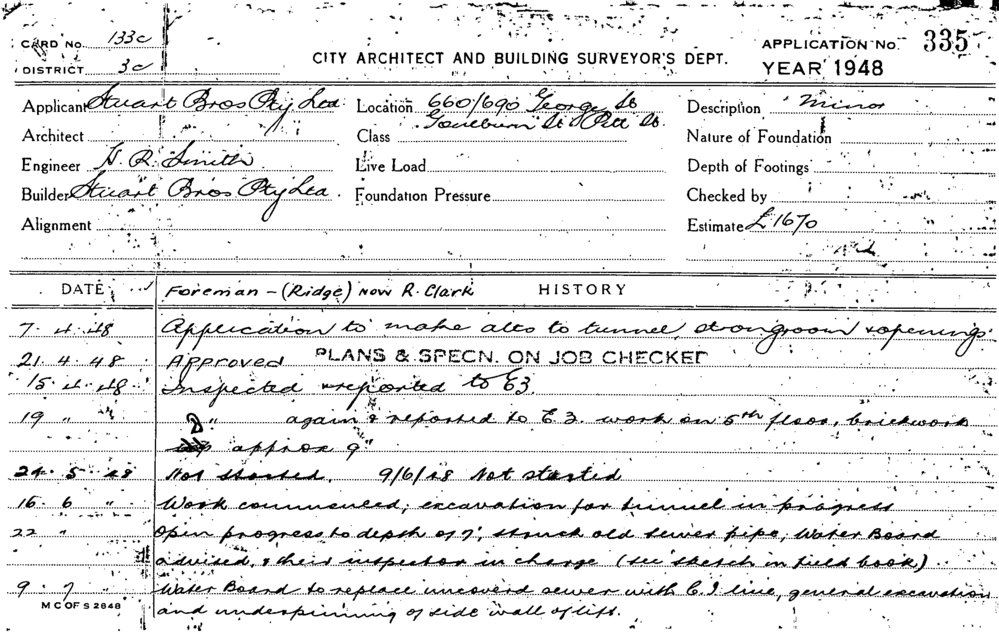 CARD No. 133c
DISTRICT 3c
CITY ARCHITECT AND BUILDING SURVEYOR'S DEPT.
APPLICATION No. 335
YEAR 1948
Applicant Stuart Bros Pty Ltd. Location 660/690 George St Description Minor
Goulburn St & Pitt St.
Architect Class Nature of Foundation
Engineer H. R. Smith Live Load Depth of Footings
Builder Stuart Bros Pty Ltd. Foundation Pressure Checked by
Alignment Estimate £1670
DATE Foreman - (Ridge) Now R. Clark HISTORY
7. 4. 48 Application to make alts to tunnel, strongroom & openings
21. 4. 48 Approved PLANS & SPECN. ON JOB CHECKED
15. 4. 48 Inspected & reported to E3.
19 " " " again & reported to E3. work on 5th floor, brickwork
approx 9"
24. 5. 48 Not started. 9/6/48 Not started
16. 6 " Work commenced; excavation for tunnel in progress
22 " Open progress to depth of 7', struck old sewer pipe, Water Board
advised, & their inspector in charge (see sketch in field book)
9. 7 Water Board to replace uncoverd sewer with C.I line, general excavation
and underpinning of side wall of lift.
M C OF S 2848